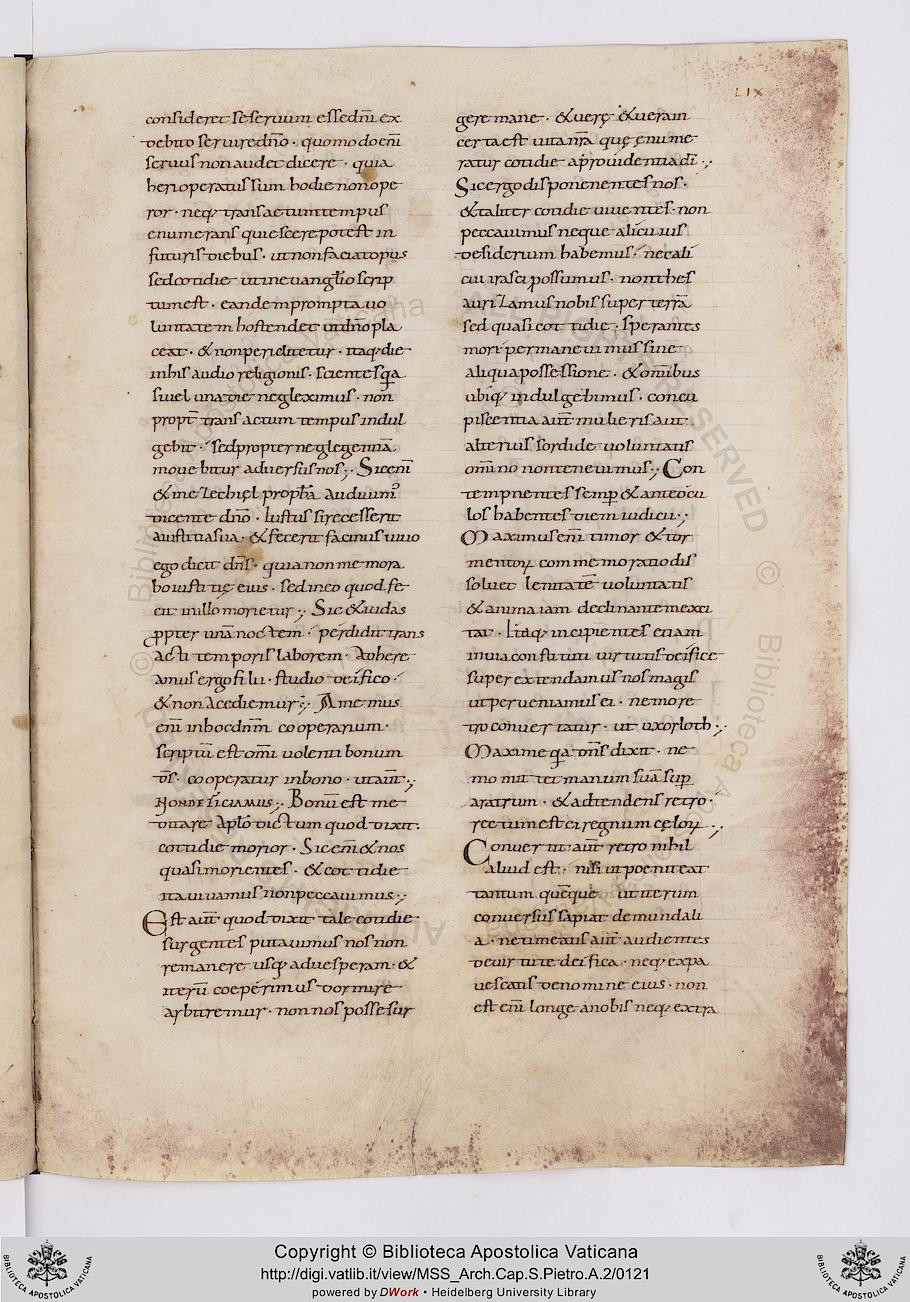 LIX
consideret se seruum esse dnī ex
debito seruire dnō · quomodo enī
seruus non audet dicere · quia
heri operatus sum hodie non ope
ror · neq; transactum tempus
enumerans quiescere potest in
futuris diebus · ut non faciat opus
sed cotidie ut in euanglio scrip
tum est · eandem prompta uo
luntatem hostendet ut dnō pla
ceat · & non periclitetur · itaq; die
in his audio religionis · scientes qa
si uel una die neglexímus · non
propt transactum tempus indul
gebit · sed propter neglegentiā
mouebitur aduersus nos ;· Sic enī
& in ezechiel prophā audiuim'
dicente dnō · Iustus si recesserit
a iustitia sua · & fecerit facinus uiuo
ego dicit dns · quia non memora
bo iustitię eius · sed in eo quod fe
cit in illo morietur ;· Sic & iudas
ppter unā noctem · perdidit trans
acti temporis laborem · Adhere
amus ergo filii · studio deifico ·
& non acediemur ;· Amemus
enī in hoc dnm̄ cooperarium ·
scriptū est omī uolenti bonum
ds̄ · cooperatur in bono · ut aūt ;·
NON DEFICIAMUS ;· Bonū est me
ditare aplō dictum quod dixit ·
cotidie morior · Sic enī & nos
quasi morientes · & cottidie
ita uiuamus non peccauimus ;·
Est aūt quod dixit tale cotidie
surgentes putauimus nos non
remanere usq; ad uesperam · &
iterū coeperimus dormire
arbitremur · non nos posse sur
gere mane · & uerę & ueram
certa est uita nrā quę enume
ratur cotidie a prouidentia dī ;·
Sic ergo disponenentes nos ·
& taliter cotidie uiuentes · non
peccauimus neque alicuius
desiderium habemus · nec ali
cui irasci possumus · non thes
aurizamus nobis super terrā
sed quasi cottidie · sperantes
mori permaneuimus sine
aliqua possessione · & omībus
ubiq; indulgebimus · concu
piscentia aūt mulieris aut
alterius sordide uoluntatis
omnino non teneuimus ;· Con
tempnentes semp & ante ocu
los habentes diem iudicii ;·
Maximus enī timor & tor
mentor commemoratio dis
soluet lenitatē uoluntatis
& anima iam declinantem exci
tat · Itaq; incipientes etiam
in uia constituti uirtutis deifice
superextendamus nos magis
ut perueniamus ei · nemo re
tro conuertatur · ut uxor loth ;·
Maxime qa dns̄ dixit · ne
mo mittet manum suā sup
aratrum · & adtendens retro ·
rectum est ei regnum cęlor ;·
Conuertit aūt retro nihil
aliud est · nisi ut poeniteat
tantum quęque · ut iterum
conuersus sapiat de mundali
a · ne timeatis aūt audientes
de uirtute deifica · neq; expa
uescatis de nomine eius · non
est enī longe a nobis neq; extra
Copyright © Biblioteca Apostolica Vaticana
http://digi.vatlib.it/view/MSS_Arch.Cap.S.Pietro.A.2/0121
powered by DWork • Heidelberg University Library